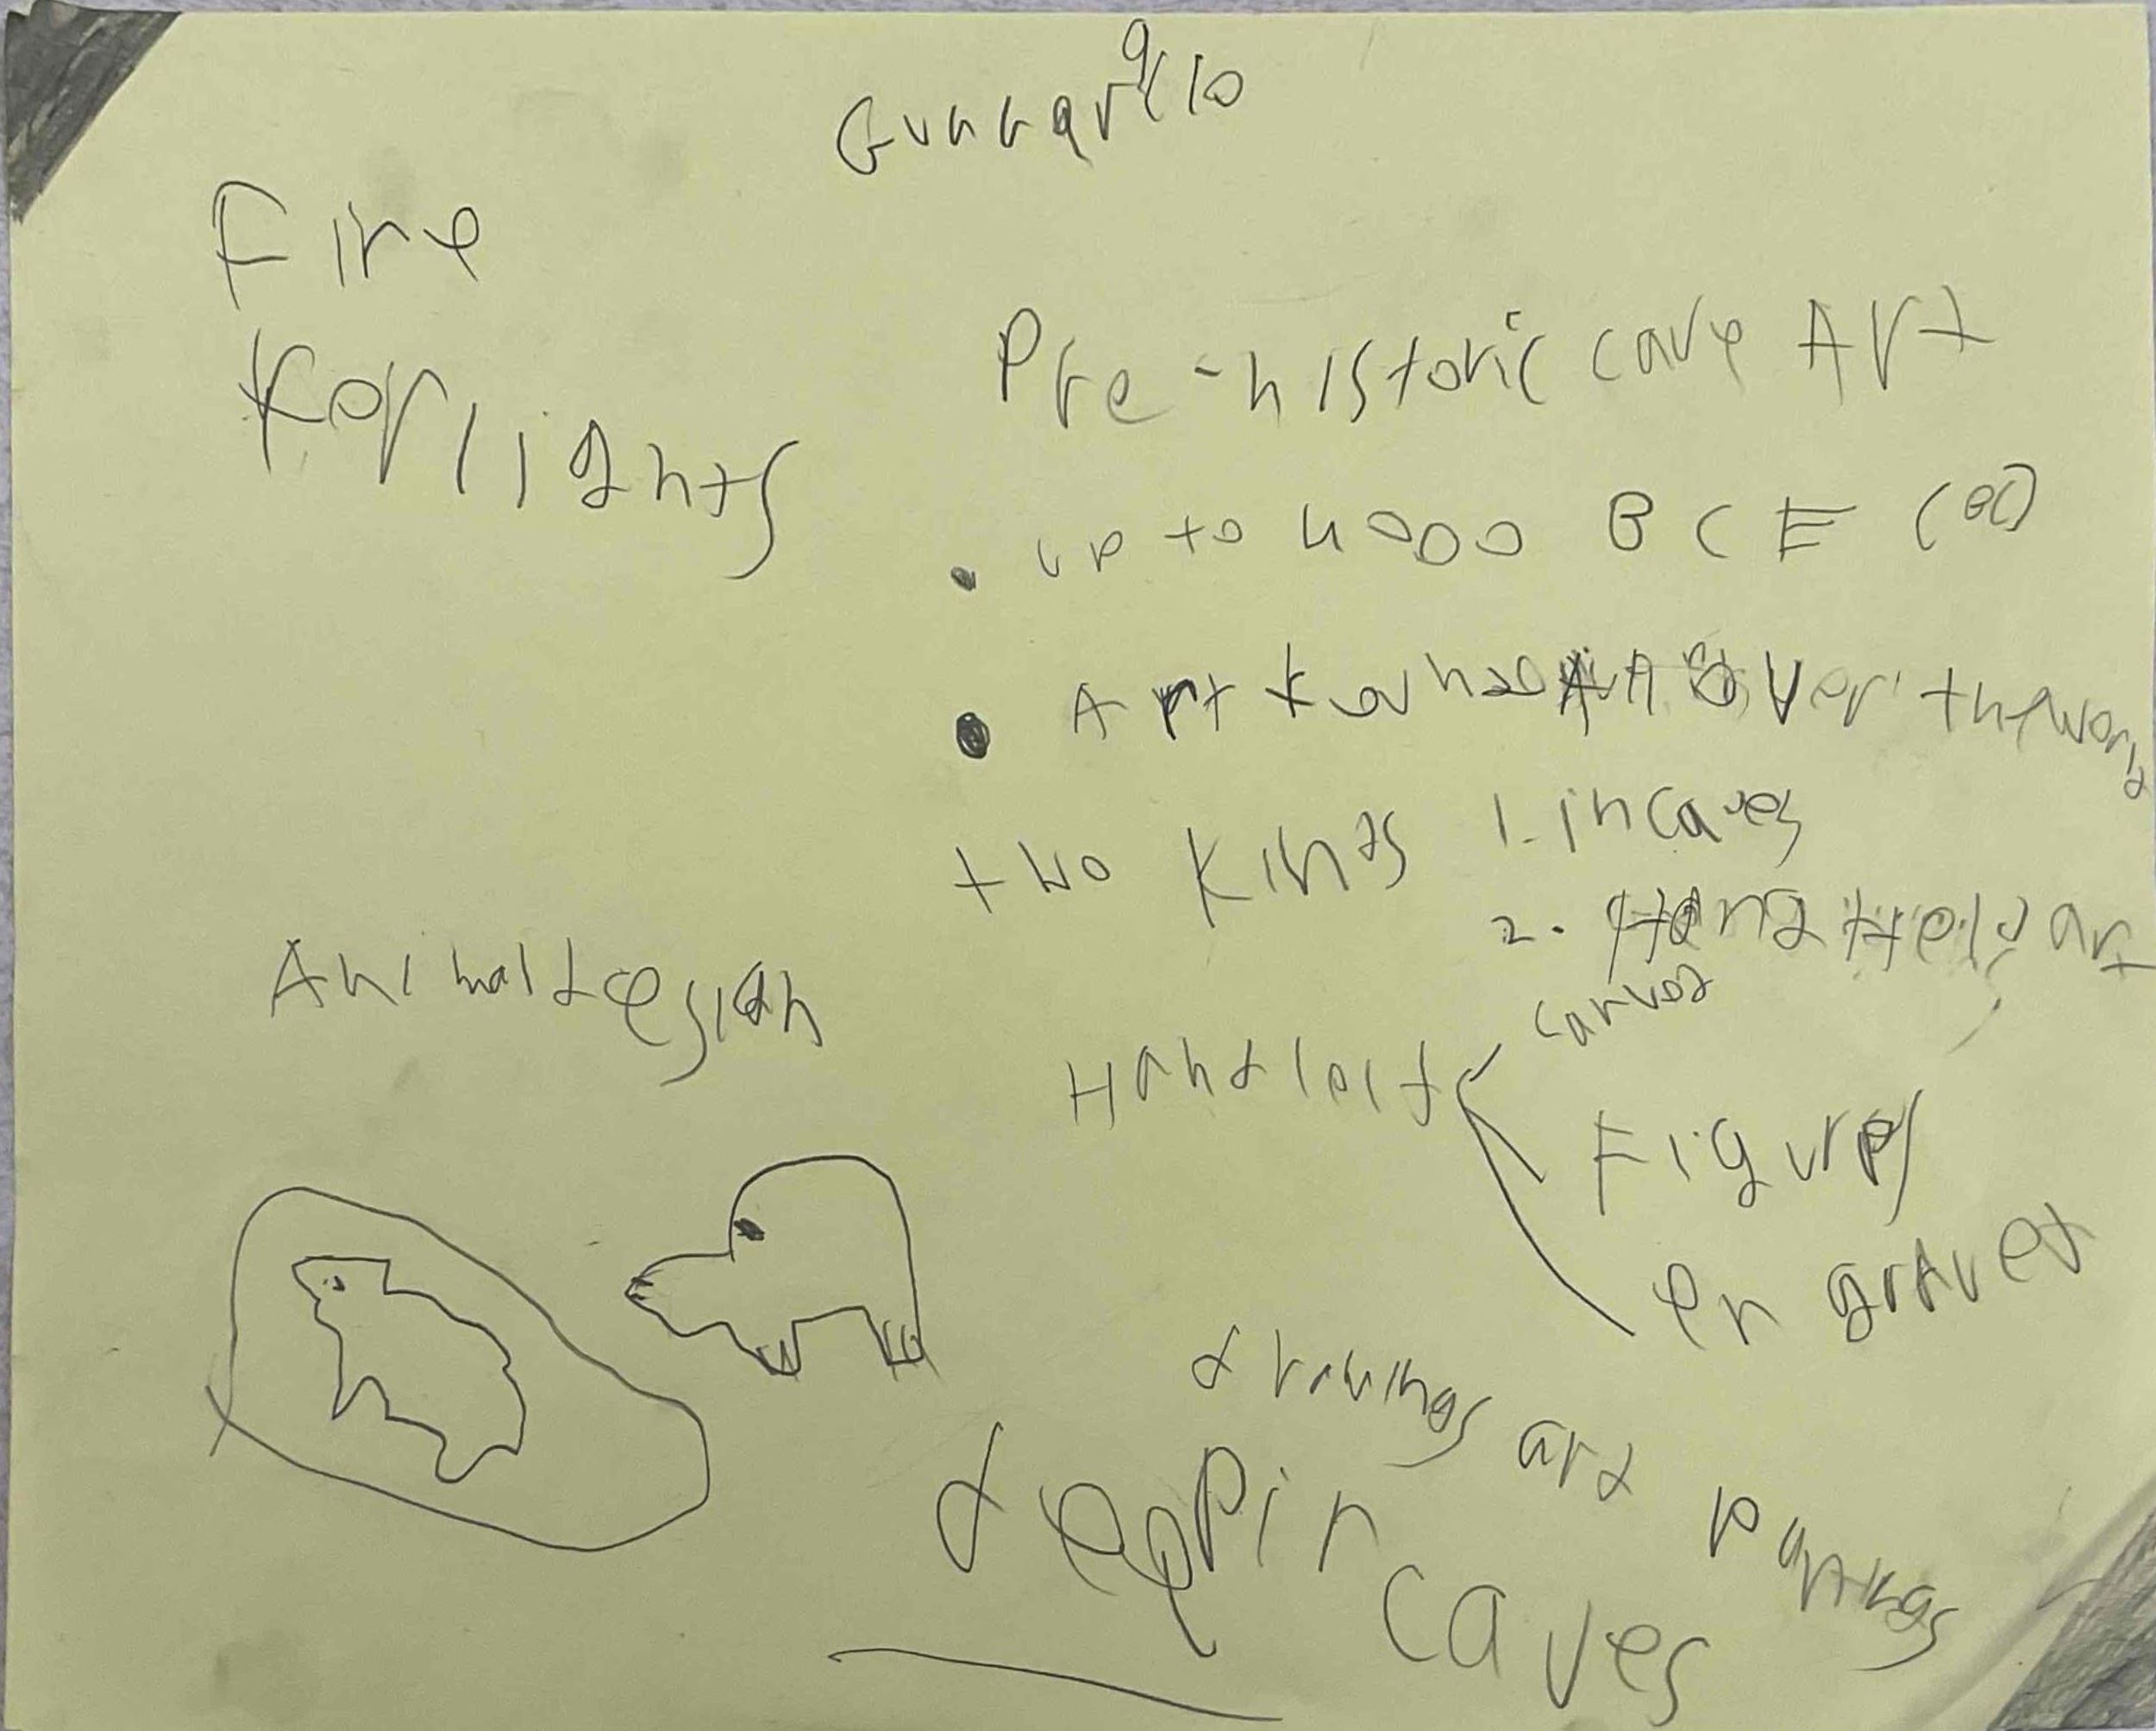 Gunnar 9/10
Fire
For lights
Pre-historic cave Art
• up to 4000 BCE (BC)
• Art found All over the world
two Kinds 1. in caves
2. Hand Held art
Animal design
Hand leld carved
Figures
engraved
drawings and pantings
deep in caves